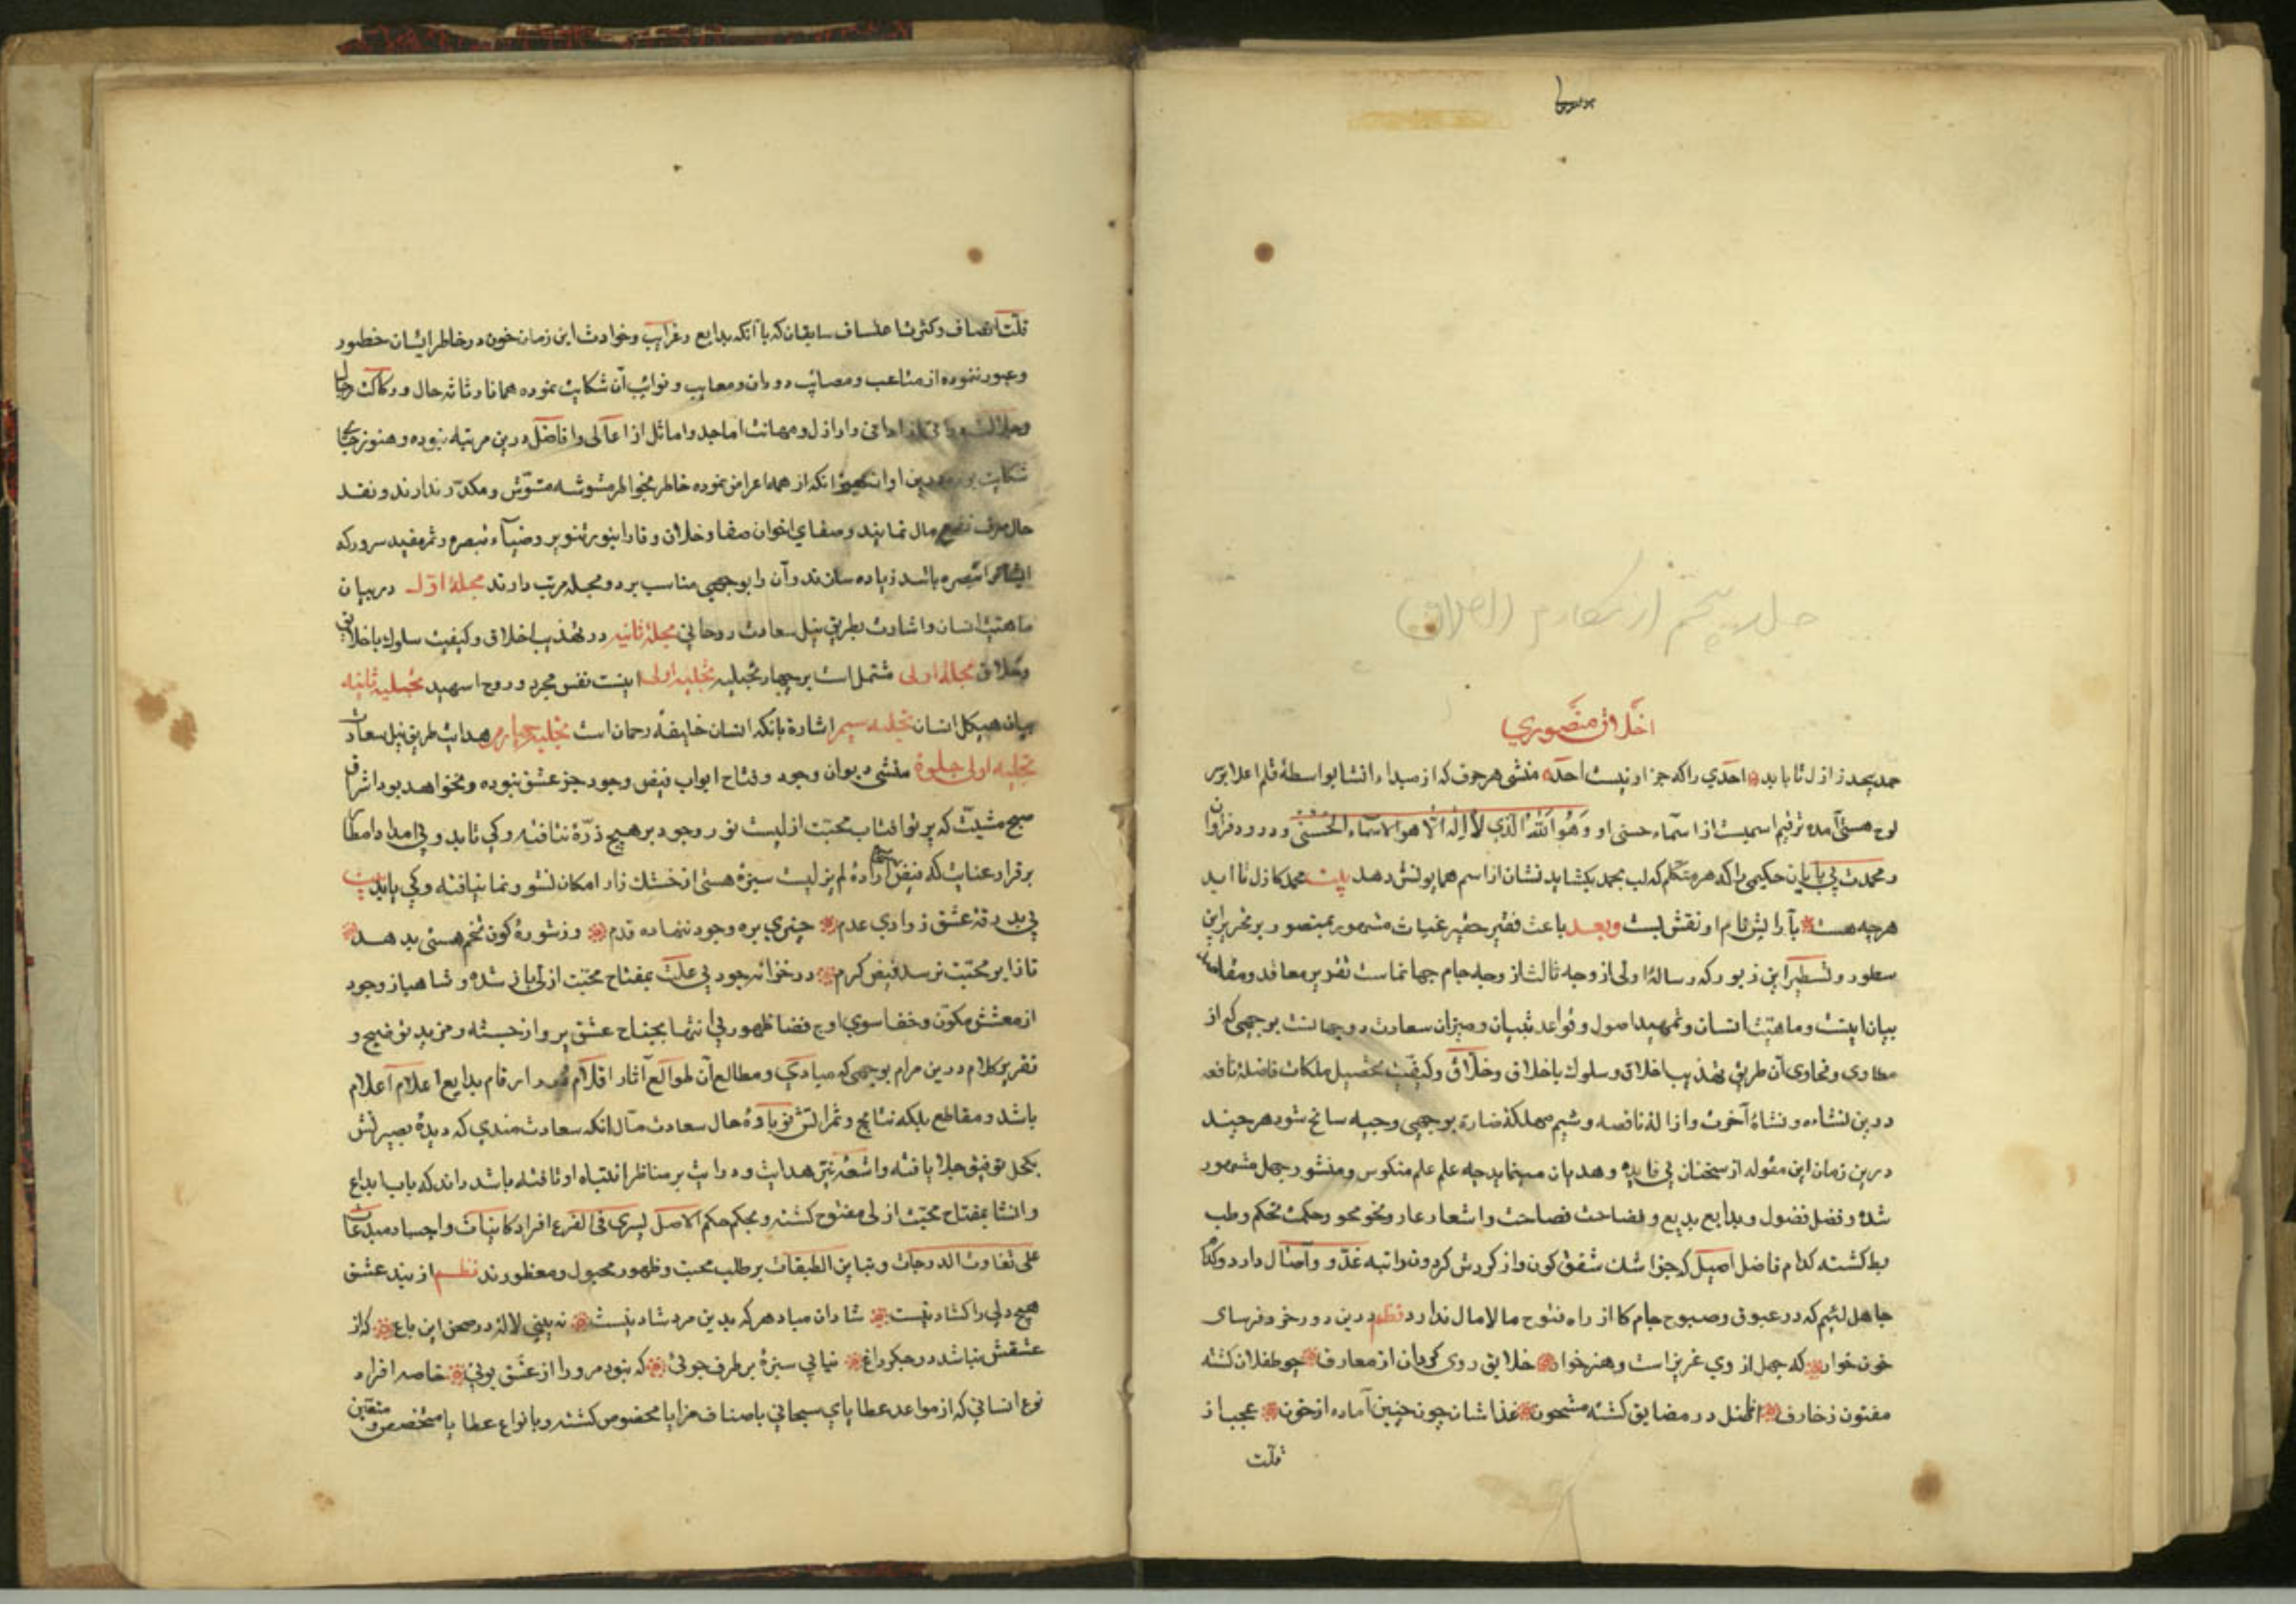 جلد پنجم از مکارم الاخلاق
اخلاق منصوري
حمد بیحد ز ازل تا بابد احدي را که جز او نیست احد منشی هر حرف که از مبداء انشا بواسطۀ قلم اعلا بر
لوح هستی آمده ترقیم اسمیست از اسماء حسنی او وَهُوَ اللّٰهُ الَّذي لا اِلٰهَ اِلّا هو له الاسماء الحُسنی و درود فراوان
و محمدت بي پایان حکیمی را که هر متکلم که لب بحمد بکشاید نشان از اسم همایونش دهد بیت محمد کازل تا ابد
هرچه هست بآرایش نام او نقش بست وبعد باعث فقیر حقیر غیاث مشهور بمنصور بر تحریر این
سطور و تسطیر این زبور که رسالۀ اولی از وجه ثالث از وجه جام جهانماست تقریر معاقد و مقاصد
بیان اینیت و ماهیّت انسان و تمهید اصول و قواعد تبیان و میزان سعادت دوجهانست بر وجهی که از
مطاوی و فحاوی آن طریق تهذیب اخلاق و سلوك با خلاق و خلّاق و کیفیّت تحصیل ملکات فاضلۀ نافعه
درین نشاءه و نشاۀ آخرت و ازالۀ ناقصه و شیم مهلکۀ ضاره بوجهی وجیه سانح شود هر چند
درین زمان این مقوله از سخنان بي فایده و هدیان مینماید چه علم علم منکوس و منشور جهل مشهور
شده و فضل فضول و بدایع بدیع و فضاحت فصاحت و اشعار عار و نحو محو و حکمت تحکم و طب
بط کشته کدام فاضل اصیل که جز اشك شفق کون و از کردش کردون راتبه غدو و آصال دارد و کدام
جاهل لئیم که در عبوق و صبوح جام کا از راه فتوح مالامال ندارد نظم درین دور خرد فرسای
خون خوار که جهل از وي عزیز است و هنر خوار خلایق روی کردان از معارف چو طفلان کشته
مفتون زخارف افضل در مضایق کشته مشحون غذاشان چون جنین آماده از خون عجب از
قلّت
قلّت انصاف و کثرت اعتساف سابقان که با آنکه بدایع و غرایب و حوادث این زمان خون در خاطر ایشان خطور
و عبور ننموده از متاعب و مصائب دوران و معایب و نوائب آن شکایت نموده همانا رثاثه حال و رکاکت رجال
و جلالت ... اداني و اراذل و مهانت اماجد و اماثل از اعالی و افاضل درین مرتبه نبوده و هنوز جای
شکایت بود ... درین اوان ... آنکه از همه اعراض نموده خاطر بخواطر مشوشه متشوش و مکدّر ندارند و نقد
حال صرف نفع مال نمایند و صفاي اخوان صفا و خلان وفا را بنور تنویر و ضیآء تبصره و ثمر مفید سرور که
ایشانرا متصره باشد زیاده سازند و آن را بوجهی مناسب بر دو مجله مرتب دارند مجلۀ اوّل در بیان
ماهیت انسان و اشارت بطریق نیل سعادت روحانی مجلۀ ثانیه در تهذیب اخلاق و کیفیت سلوك با خلایق
و خلاق مجلۀ اولی مشتمل است بر چهار تجلیه تجلیه اولی اینیت نفس مجرد و روح اسهبد تجلیه ثانیه
بیان هیکل انسان تجلیه سیم اشارة بانکه انسان خلیفۀ رحمان است تجلیه چهارم هدایت طریق نیل سعادت
تجلیه اولی جلوۀ منشی دیوان وجود و فتاح ابواب فیض وجود جز عشق نبوده و نخواهد بود اشراق
صبح مشیّت که پرتو افتاب محبّت ازلیست نور وجود بر هیچ ذرّۀ نتافته و کي تابد و بي امداد امطار
برقرار عنایت که فیض ارادۀ لم یزلیست سبزۀ هستی از خشك زار امکان نشو و نما نیافته و کي یابد بیت
بي بدرقۀ عشق ز وادي عدم چیزي بره وجود ننهاده قدم وز شورۀ کون تخم هستی بدهد
تا ز ابر محبّت نرسد فیض کرم در خزانه جود بي علّت بمفتاح محبّت ازلی باز شده و شاهباز وجود
از معشش مکون و خفا سوي اوج فضا ظهور بي انتها بجناح عشق پرواز جسته و مزید توضیح و
تقریر کلام درین مرام بوجهی که مبادي و مطالع آن لوامع آثار اقلام ... ارقام بدایع اعلام اعلام
باشد و مقاطع بلکه نتایج و ثمراتش نو باوۀ حال سعادت مآل آنکه سعادت مندي که دیدۀ بصیرتش
بکحل توفیق جلا یافته و اشعۀ نیّر هدایت و درایت بر مناظر انتباه او تافته باشد داند که باب ابداع
و انشا بمفتاح محبّت ازلی مفتوح کشته و بحکم حکم الاصل یسري في الفرع افراد کاینات و اجساد مبدعات
علی تفاوت الدرجات و تباین الطبقات بر طلب محبت و ظهور مجبول و مفطورند نظم از بند عشق
هیچ دلي را کشاد نیست شادان مباد هر که بدین مرد شاد نیست نه بینی لالۀ در صحن این باغ که از
عشقش نباشد در جکر داغ نیابي سبزۀ بر طرف جوئی که نبود مر ورا از عشق بوئي خاصه افراد
نوع انساني که از مواعد عطایاي سبحاني باصناف مزایا مخصوص کشته و بانواع عطایا متخصص و متعین